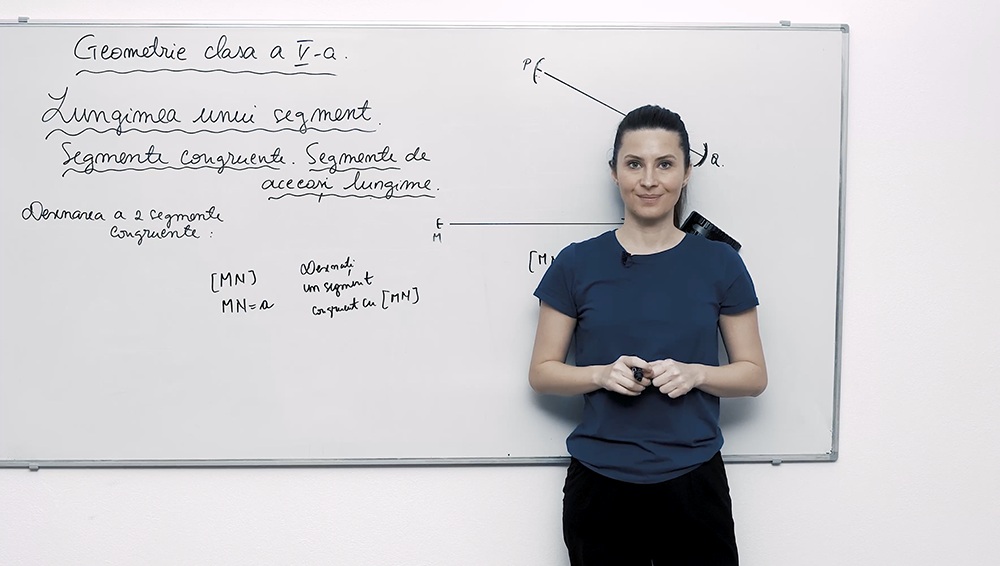 Geometrie clasa a V-a.
Lungimea unui segment.
Segmente congruente. Segmente de
aceeași lungime.
Desenarea a 2 segmente
congruente :
[MN]
MN=a
Desenați
un segment
congruent cu [MN]
P
Q.
M
[M